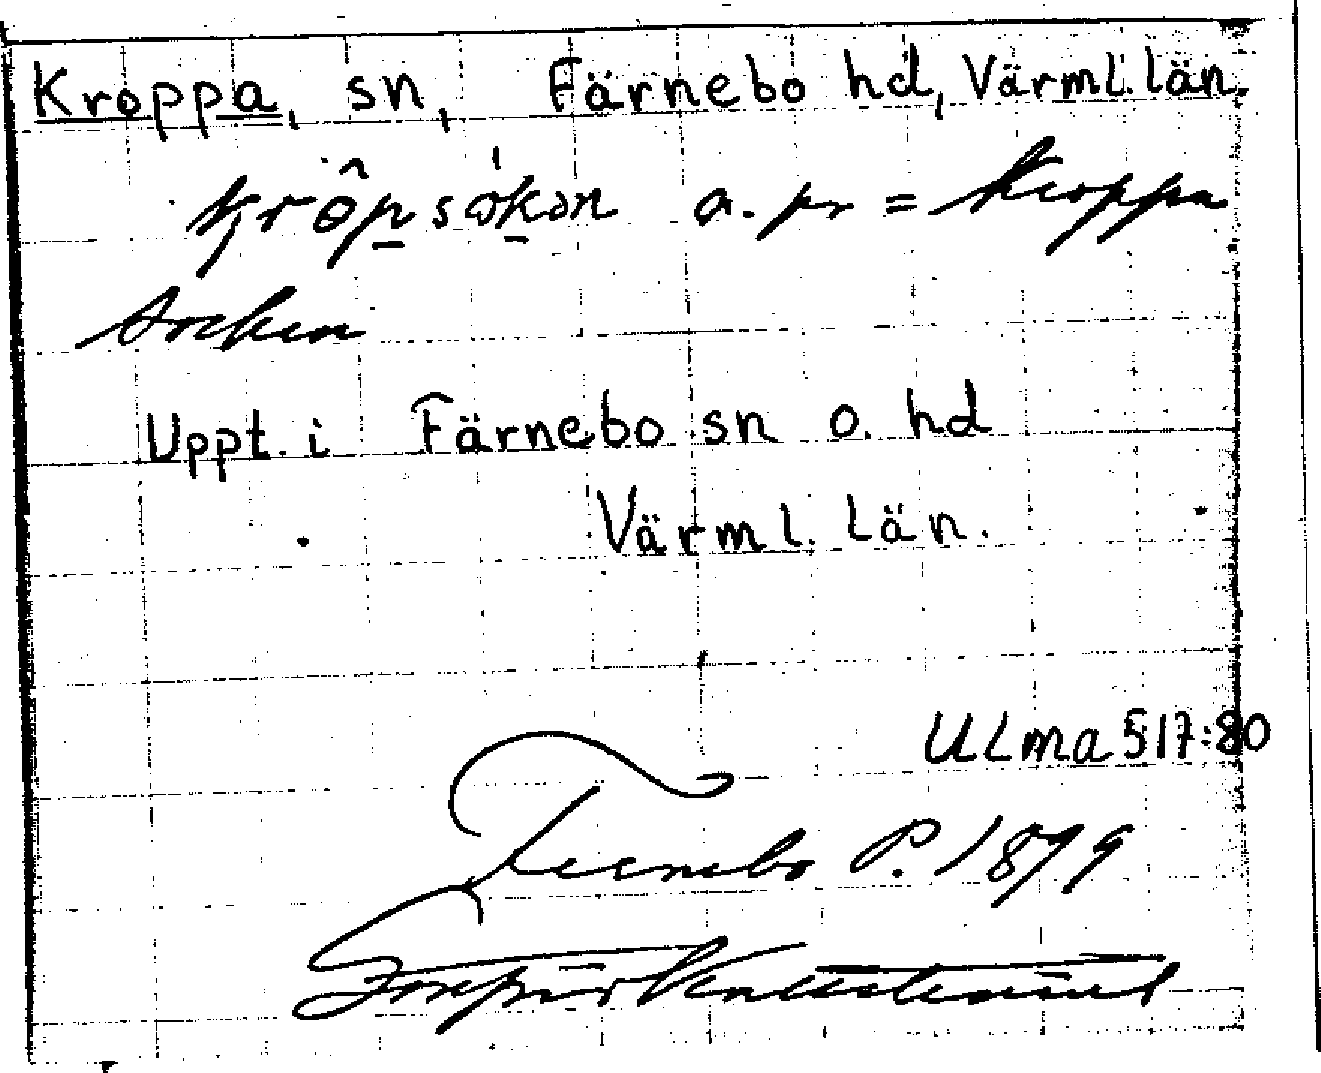 Kroppa, sn, Färnebo hd, Värml. län.
krôpsǿkən a. pr = Kroppa
Socken
Uppt. i Färnebo sn o. hd
Värml. län.
ULma 517:80
Fernebo P. 1879